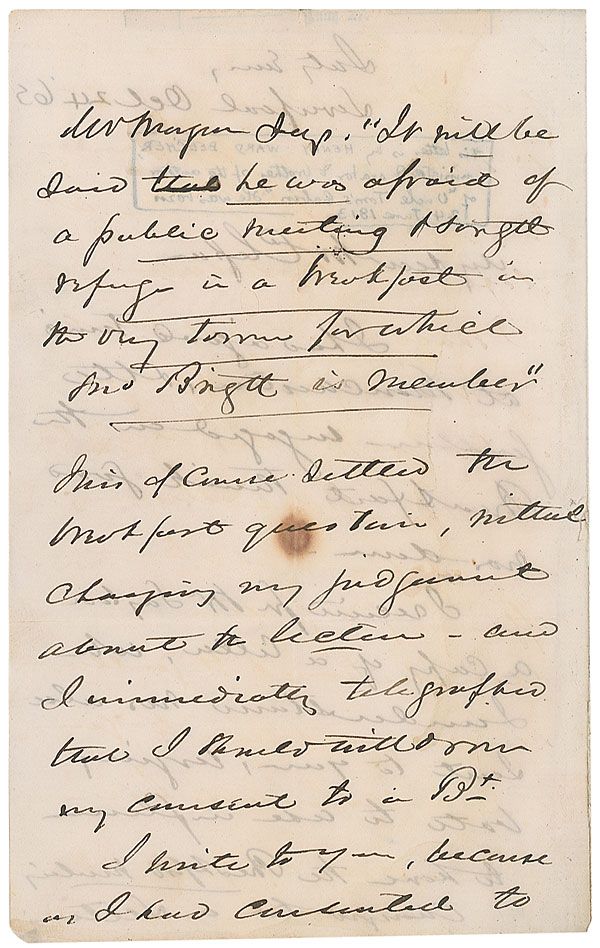 Mr Morgan says. "It will be
said that he was afraid of
a public meeting & sought
refuge in a breakfast in
the very town for which
Jno Bright is member"
This of course settled the
breakfast question, without
changing my judgment
about the lecture - and
I immediately telegraphed
that I should withdraw
my consent to a Bt.
I write to you, because
as I had consented to